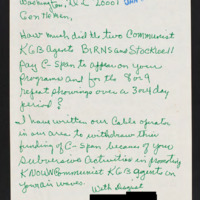 Washington, D.C. 20001
Gentlemen,
How much did the two Communist
KGB agents BIRNS and Stockwell
pay C-Span to appear on your
programs and for the 8 or 9
repeat showings over a 3 or 4 day
period?
I have written our Cable operator
in our area to withdraw their
funding of C-Span because of your
subversive activities in promoting
KNOWN Communist KGB agents on
your air waves.
With Disgust